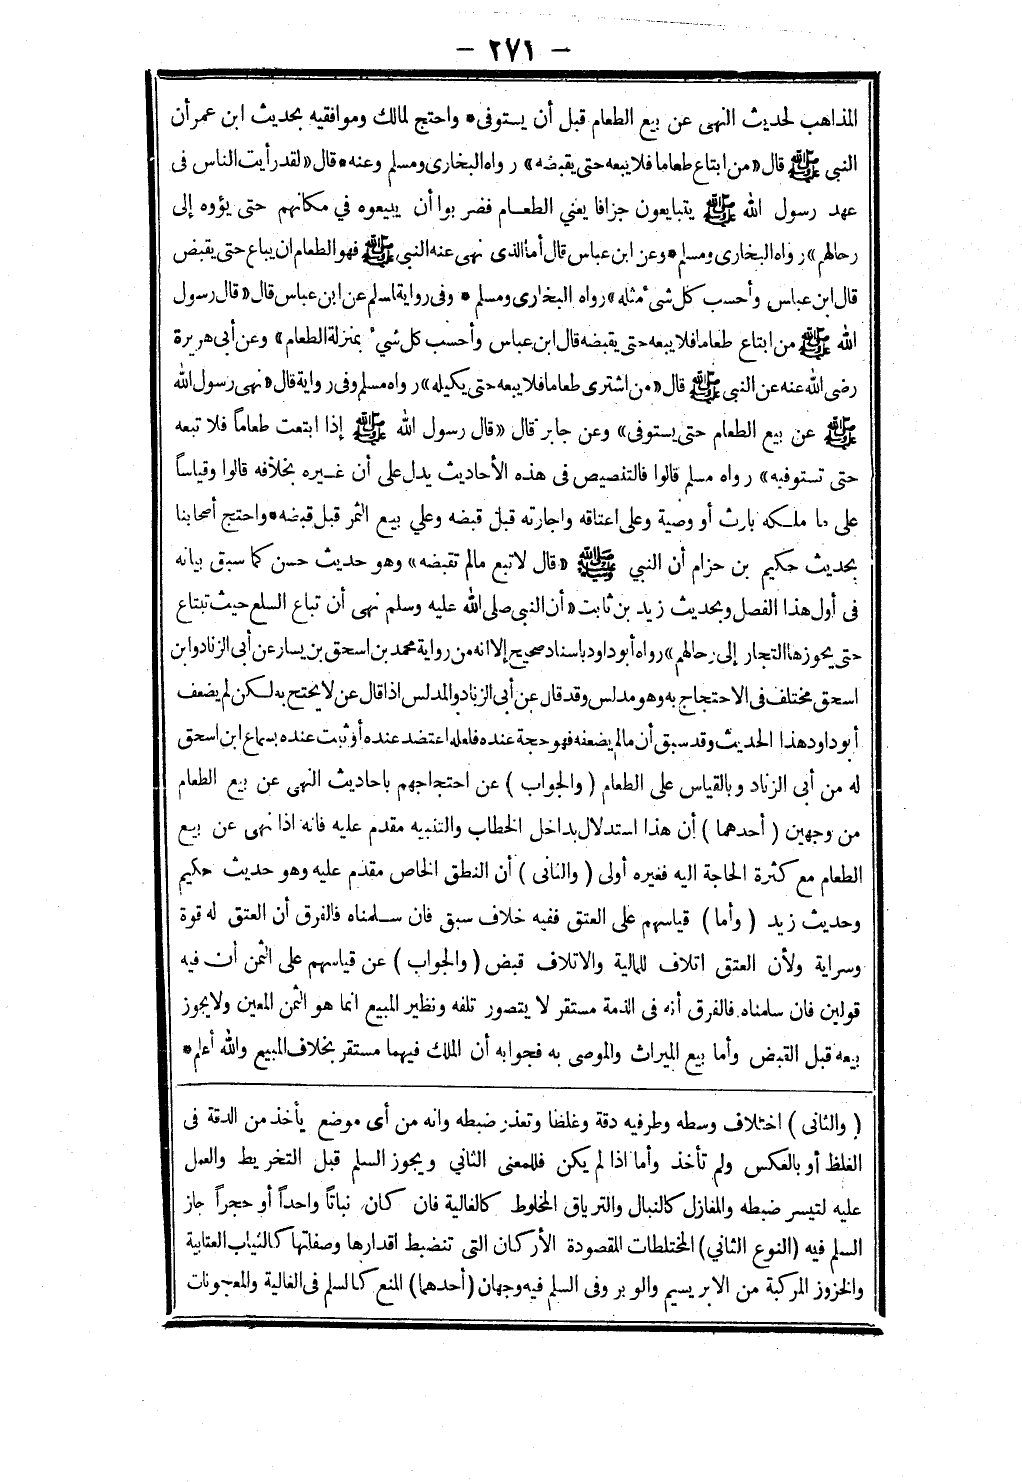 — ٢٧١ —
المذاهب لحديث النهى عن بيع الطعام قبل أن يستوفى * واحتج لمالك وموافقيه بحديث ابن عمر أن
النبي ﷺ قال «من ابتاع طعاما فلا يبعه حتى يقبضه» رواه البخارى ومسلم وعنه * قال «لقد رأيت الناس فى
عهد رسول الله ﷺ يتبايعون جزافا يعني الطعام فضربوا أن يبيعوه في مكانهم حتى يؤوه إلى
رحالهم» رواه البخارى ومسلم * وعن ابن عباس قال أما الذى نهى عنه النبى ﷺ فهو الطعام ان يباع حتى يقبض
قال ابن عباس وأحسب كل شىء مثله» رواه البخارى ومسلم * وفى رواية لمسلم عن ابن عباس قال «قال رسول
الله ﷺ من ابتاع طعاما فلا يبعه حتى يقبضه قال ابن عباس وأحسب كل شيء بمنزلة الطعام» وعن أبى هريرة
رضى الله عنه عن النبى ﷺ قال «من اشترى طعاما فلا يبعه حتى يكيله» رواه مسلم وفى رواية قال «نهى رسول الله
ﷺ عن بيع الطعام حتى يستوفى» وعن جابر قال «قال رسول الله ﷺ إذا ابتعت طعاماً فلا تبعه
حتى تستوفيه» رواه مسلم قالوا فالتنصيص فى هذه الأحاديث يدل على أن غيره بخلافه قالوا وقياساً
على ما ملكه بارث أو وصية وعلى اعتاقه واجارته قبل قبضه وعلي بيع الثمر قبل قبضه * واحتج أصحابنا
بحديث حكيم بن حزام أن النبي ﷺ «قال لا تبع مالم تقبضه» وهو حديث حسن كما سبق بيانه
فى أول هذا الفصل وبحديث زيد بن ثابت «أن النبى صلى الله عليه وسلم نهى أن تباع السلع حيث تبتاع
حتى يحوزها التجار إلى رحالهم» رواه أبو داود باسناد صحيح إلا انه من رواية محمد بن اسحق بن يسار عن أبى الزناد وابن
اسحق مختلف فى الاحتجاج به وهو مدلس وقد قال عن أبى الزناد والمدلس اذا قال عن لا يحتج به لكن لم يضعف
أبو داود هذا الحديث وقد سبق أن مالم يضعفه فهو حجة عنده فلعله اعتضد عنده أو ثبت عنده بسماع ابن اسحق
له من أبى الزناد وبالقياس على الطعام (والجواب) عن احتجاجهم باحاديث النهى عن بيع الطعام
من وجهين (أحدهما) أن هذا استدلال بداخل الخطاب والتنبيه مقدم عليه فانه اذا نهى عن بيع
الطعام مع كثرة الحاجة اليه فغيره أولى (والثانى) أن النطق الخاص مقدم عليه وهو حديث حكيم
وحديث زيد (وأما) قياسهم على العتق ففيه خلاف سبق فان سلمناه فالفرق أن العتق له قوة
وسراية ولأن العتق اتلاف للمالية والاتلاف قبض (والجواب) عن قياسهم على الثمن أن فيه
قولين فان سلمناه فالفرق أنه فى الذمة مستقر لا يتصور تلفه ونظير المبيع انما هو الثمن المعين ولا يجوز
بيعه قبل القبض وأما بيع الميراث والموصى به فجوابه أن الملك فيهما مستقر بخلاف المبيع والله أعلم *
(والثانى) اختلاف وسطه وطرفيه دقة وغلظا وتعذر ضبطه وانه من أى موضع يأخذ من الدقة فى
الغلظ أو بالعكس ولم تأخذ وأما اذا لم يكن فللمعنى الثاني ويجوز السلم قبل التخريط والعمل
عليه لتيسر ضبطه والمغازل كالنبال والترياق المخلوط كالغالية فان كان نباتاً واحداً أو حجراً جاز
السلم فيه (النوع الثاني) المختلطات المقصودة الأركان التى تنضبط اقدارها وصفاتها كالثياب العتابية
والخزوز المركبة من الابريسيم والوبر وفى السلم فيه وجهان (أحدهما) المنع كالسلم فى الغالية والمعجونات